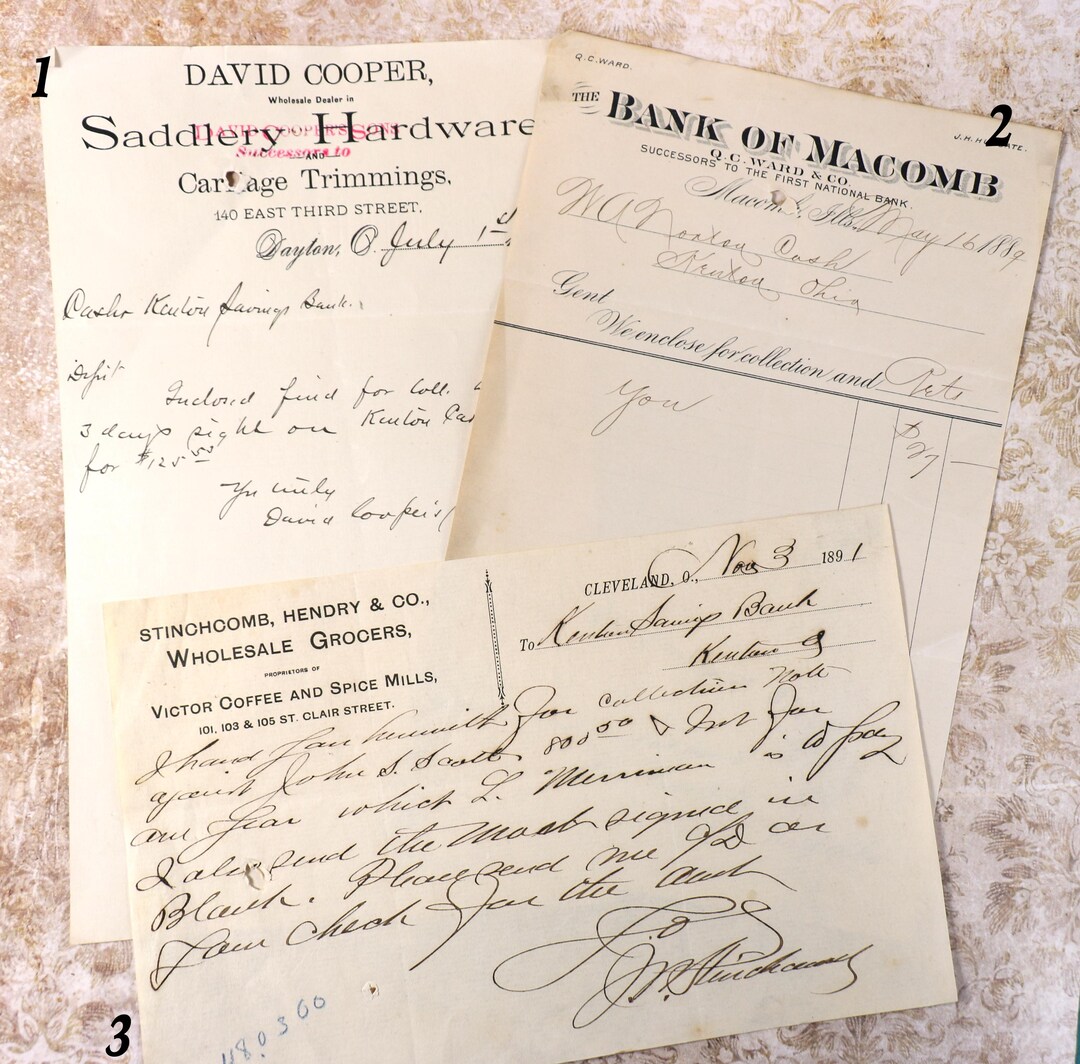 1
DAVID COOPER,
Wholesale Dealer in
Saddlery Hardware
DAVID COOPER'S SONS
Successors to
AND
Carriage Trimmings,
140 EAST THIRD STREET,
Dayton, O. July 1st
Cashr Kenton Savings Bank.
Inclosed find for coll.
3 days sight on Kenton
for $125 50
David Cooper's
2
Q. C. WARD.
THE BANK OF MACOMB
Q. C. WARD & CO.
SUCCESSORS TO THE FIRST NATIONAL BANK.
Macomb, Ills. May 16 1889
W A Norton Cash
Kenton Ohio
Gent
We enclose for collection and Rets
You
$27
CLEVELAND, O., Nov 3 1891
To Kenton Savings Bank
Kenton O
STINCHCOMB, HENDRY & CO.,
WHOLESALE GROCERS,
PROPRIETORS OF
VICTOR COFFEE AND SPICE MILLS,
101, 103 & 105 ST. CLAIR STREET.
I hand you herewith for collection Note
against John S. Scott 800 00 & Int for
one year which L. Merriman is to pay
I also send the signed in
Blank. Please send me or
your check for the amt
Stinchcomb
3